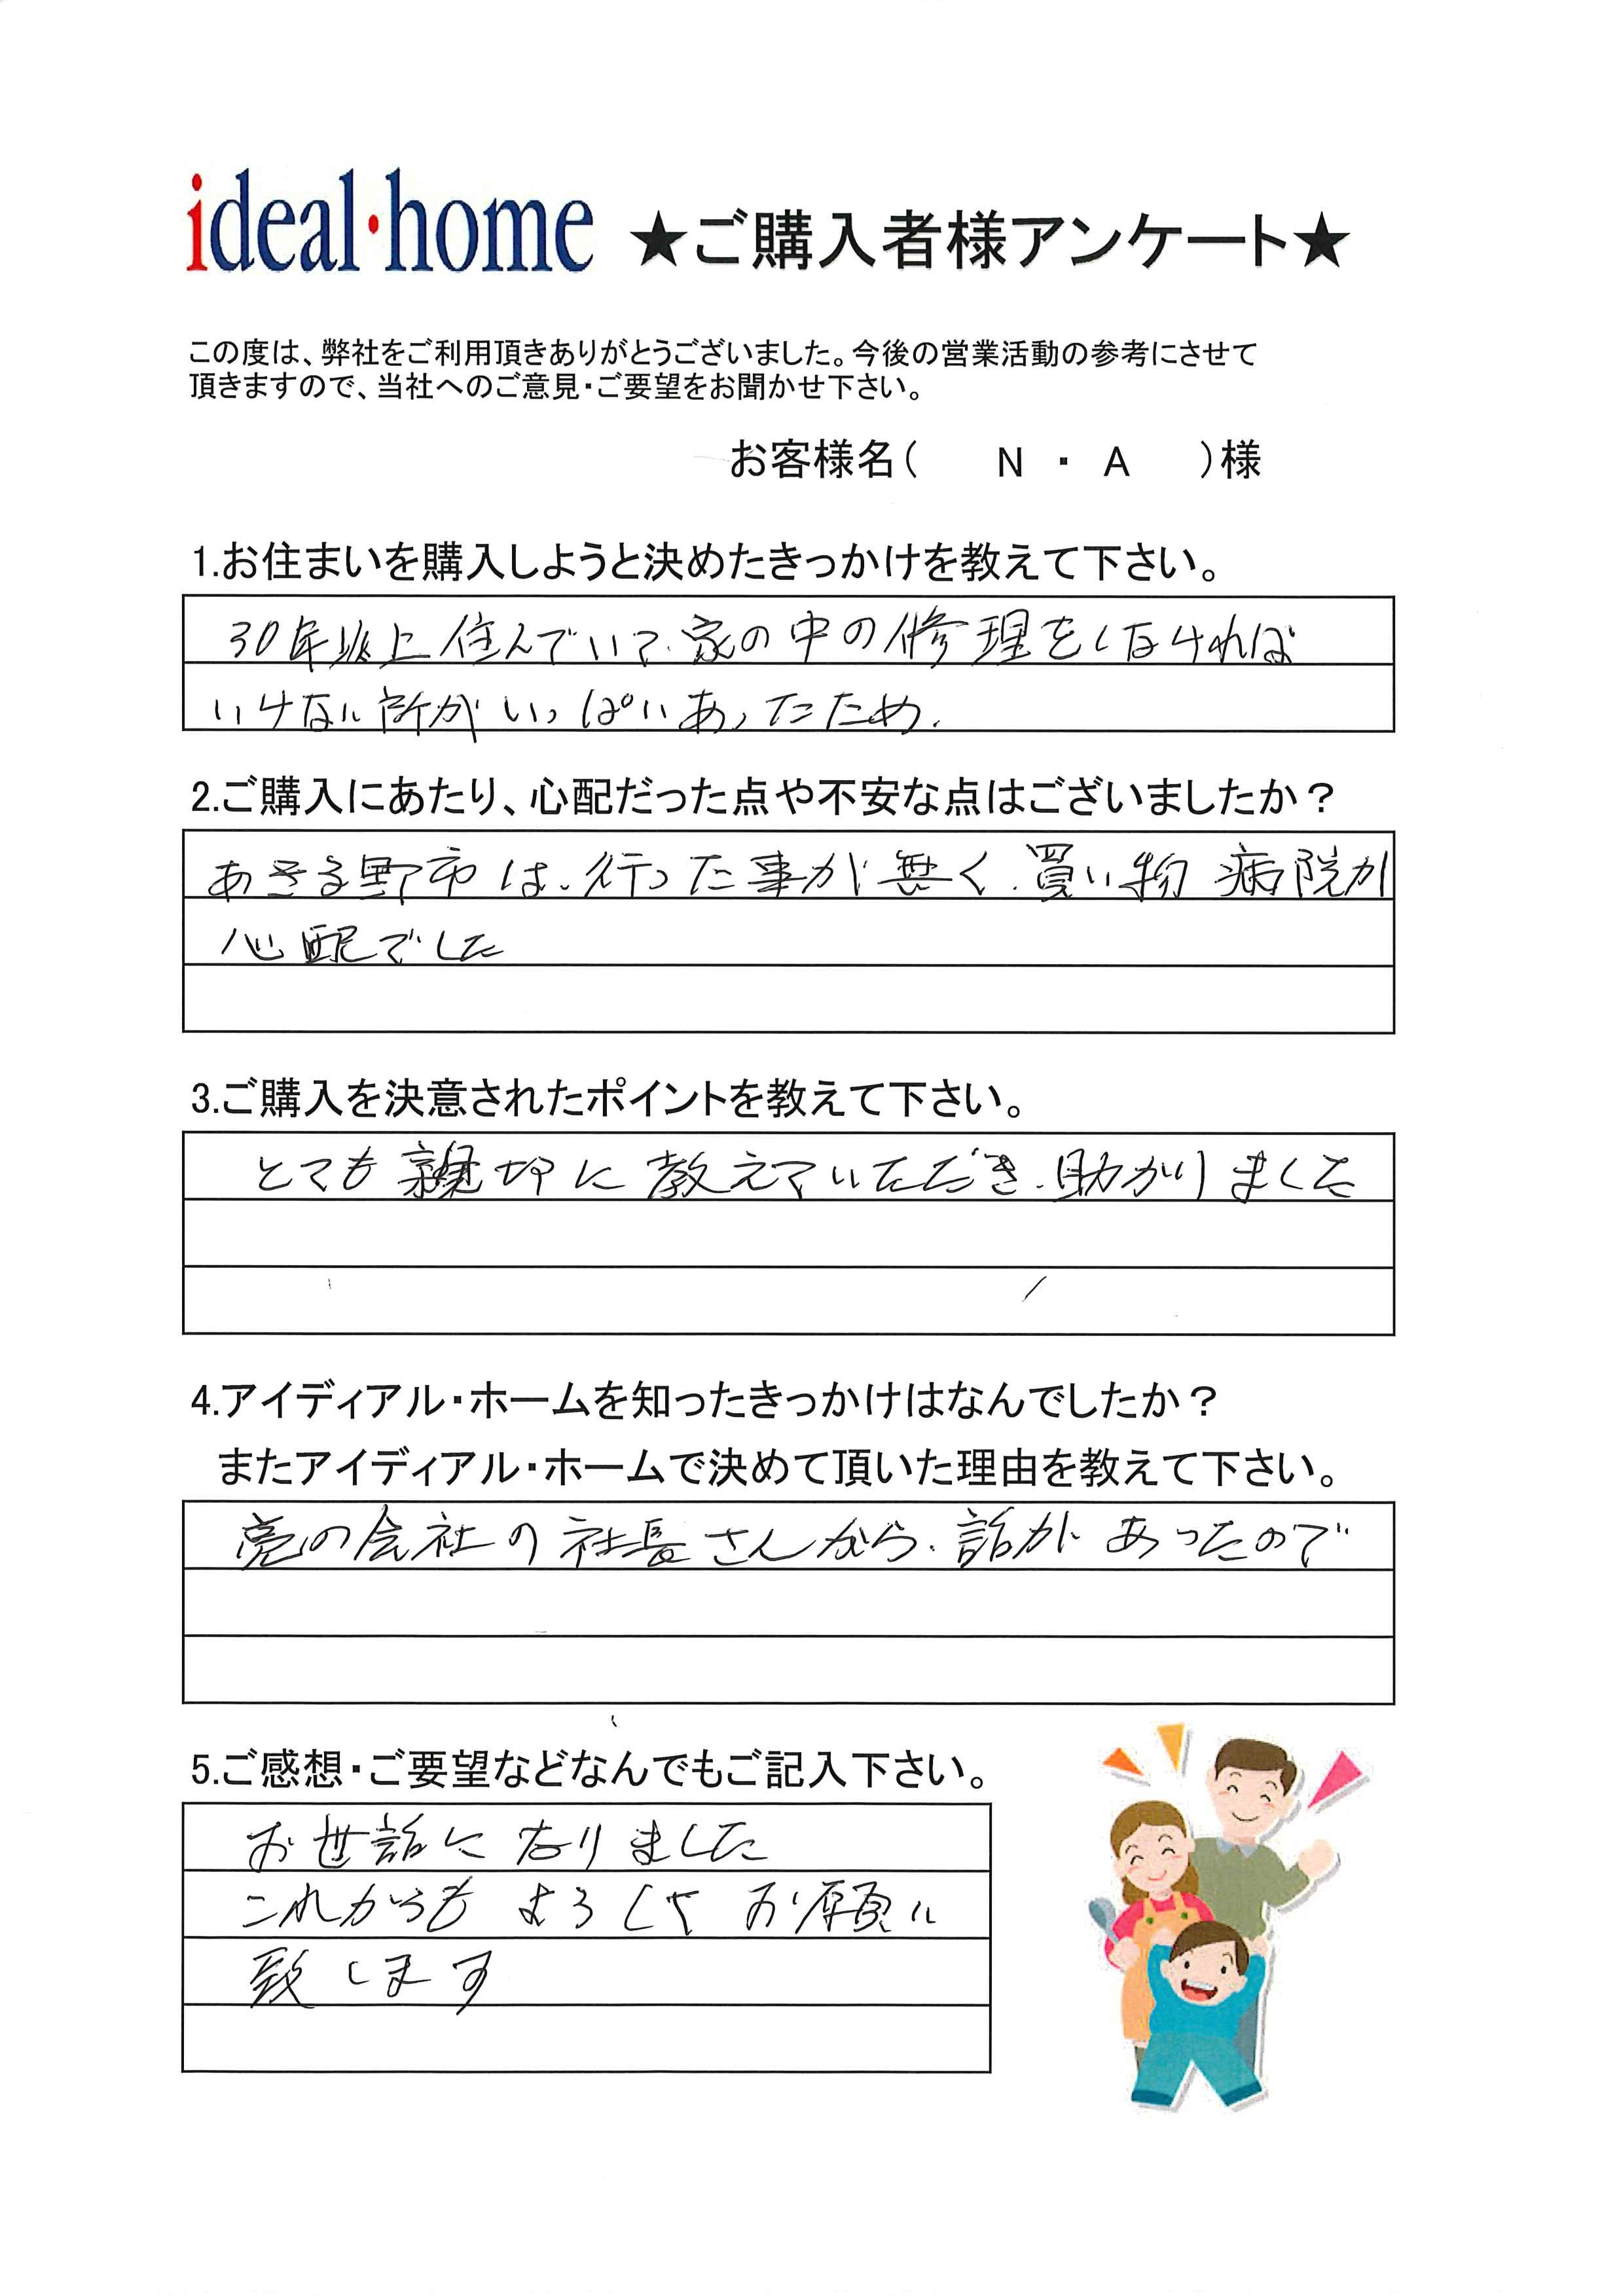 ideal・home ★ご購入者様アンケート★
この度は、弊社をご利用頂きありがとうございました。今後の営業活動の参考にさせて
頂きますので、当社へのご意見・ご要望をお聞かせ下さい。
お客様名( N ・ A )様
1.お住まいを購入しようと決めたきっかけを教えて下さい。
30年以上住んでいて、家の中の修理をしなければ
いけない所がいっぱいあったため、
2.ご購入にあたり、心配だった点や不安な点はございましたか？
あきる野市は、行った事が無く、買い物 病院が
心配でした
3.ご購入を決意されたポイントを教えて下さい。
とても親切に教えていただき、助かりました
4.アイディアル・ホームを知ったきっかけはなんでしたか？
またアイディアル・ホームで決めて頂いた理由を教えて下さい。
の会社の社長さんから、話があったので
5.ご感想・ご要望などなんでもご記入下さい。
お世話になりました
これからもよろしくお願い
致します